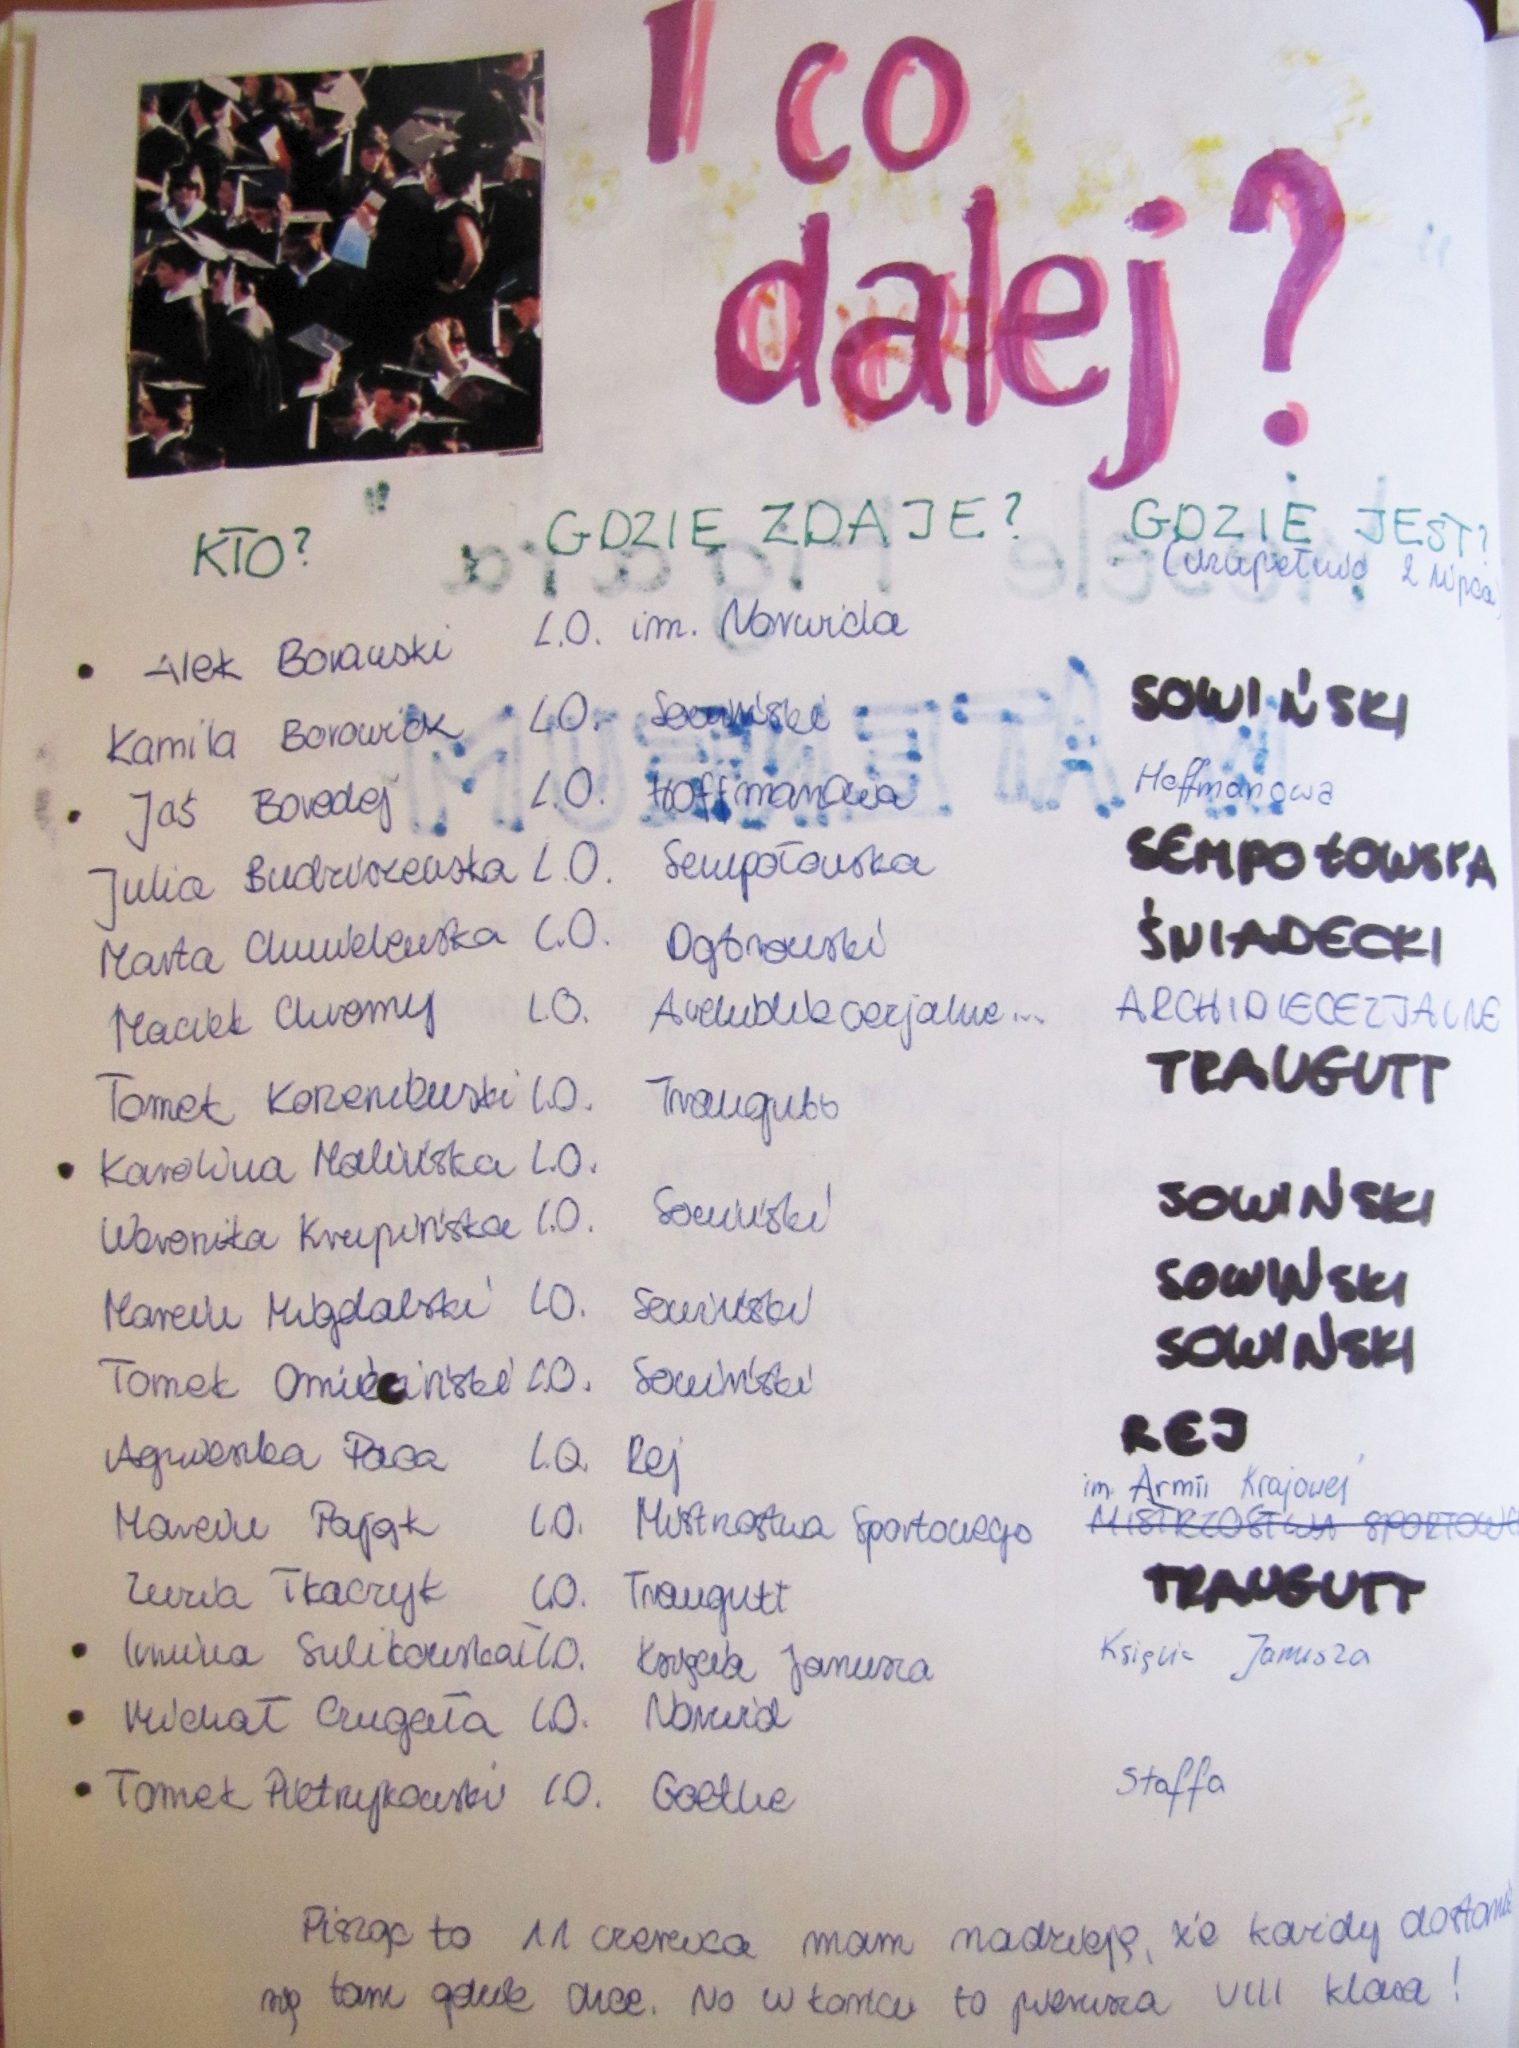 I co
dalej?
KTO? GDZIE ZDAJE? GDZIE JEST?
2 lipca)
Alek Borawski L.O. im. Norwida
Kamila Borowick L.O. Sowiński SOWIŃSKI
Jaś Boredej L.O. Hoffmanowa Hoffmanowa
Julia Budziszewska L.O. Sempołowska SEMPOŁOWSKA
Marta Chmielewska L.O. Dąbrowski ŚNIADECKI
Maciek Chromy L.O. Archidiecezjalne... ARCHIDIECEZJALNE
Tomek Korzeniewski L.O. Traugutt TRAUGUTT
Karolina Malińska L.O.
Weronika Krupińska L.O. Sowiński SOWIŃSKI
Marcin Migdalski L.O. Sowiński SOWIŃSKI
Tomek L.O. Sowiński SOWIŃSKI
Agnieszka Paca L.O. Rej REJ
im. Armii Krajowej
Marcin Pająk L.O. Mistrzostwa Sportowego MISTRZOSTWA
Zuzia Tkaczyk L.O. Traugutt TRAUGUTT
Sulikowska L.O. Księcia Janusza Księcia Janusza
Michał Czugała L.O. Norwid
Tomek Pietrzykowski L.O. Goethe Staffa
Pisząc to 11 czerwca mam nadzieję, że każdy dostanie
się tam gdzie chce. No w końcu to pierwsza VIII klasa!